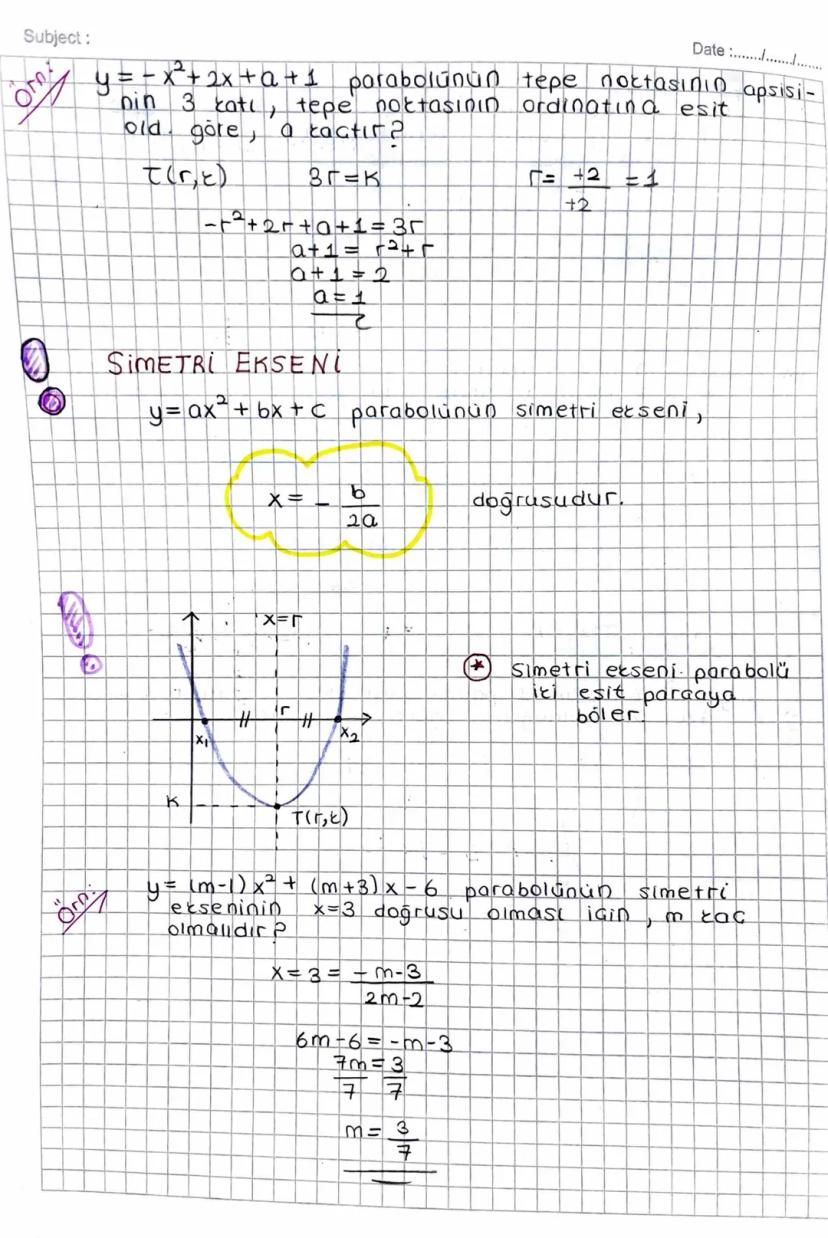 Subject :
Date :....../......./.......
Örn: y = -x² + 2x + a + 1 parabolünün tepe noktasının apsisi-
nin 3 katı, tepe noktasının ordinatına eşit
old. göre, a kaçtır?
T(r,k) 3r = k r = +2/+2 = 1
-r² + 2r + a + 1 = 3r
a + 1 = r² + r
a + 1 = 2
a = 1
SİMETRİ EKSENİ
y = ax² + bx + c parabolünün simetri ekseni,
x = - b/2a doğrusudur.
x=r
r
x₁ x₂
K
T(r,k)
Simetri ekseni parabolü
iki eşit parçaya
böler.
Örn: y = (m-1)x² + (m+3)x - 6 parabolünün simetri
ekseninin x=3 doğrusu olması için, m kaç
olmalıdır?
x = 3 = -m-3/2m-2
6m - 6 = -m - 3
7m/7 = 3/7
m = 3/7